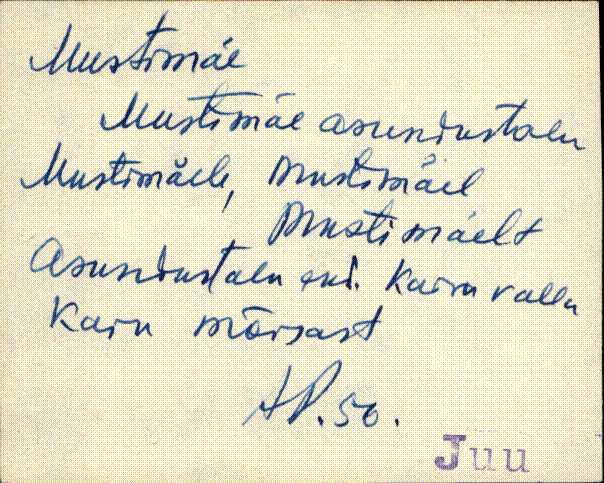 Mustimäe
Mustimäe asundustalu
Mustimäele, Mustimäel
Mustimäelt
Asundustalu end. Kaiu valla
Kaiu mõisast
AP. 50.
Juu